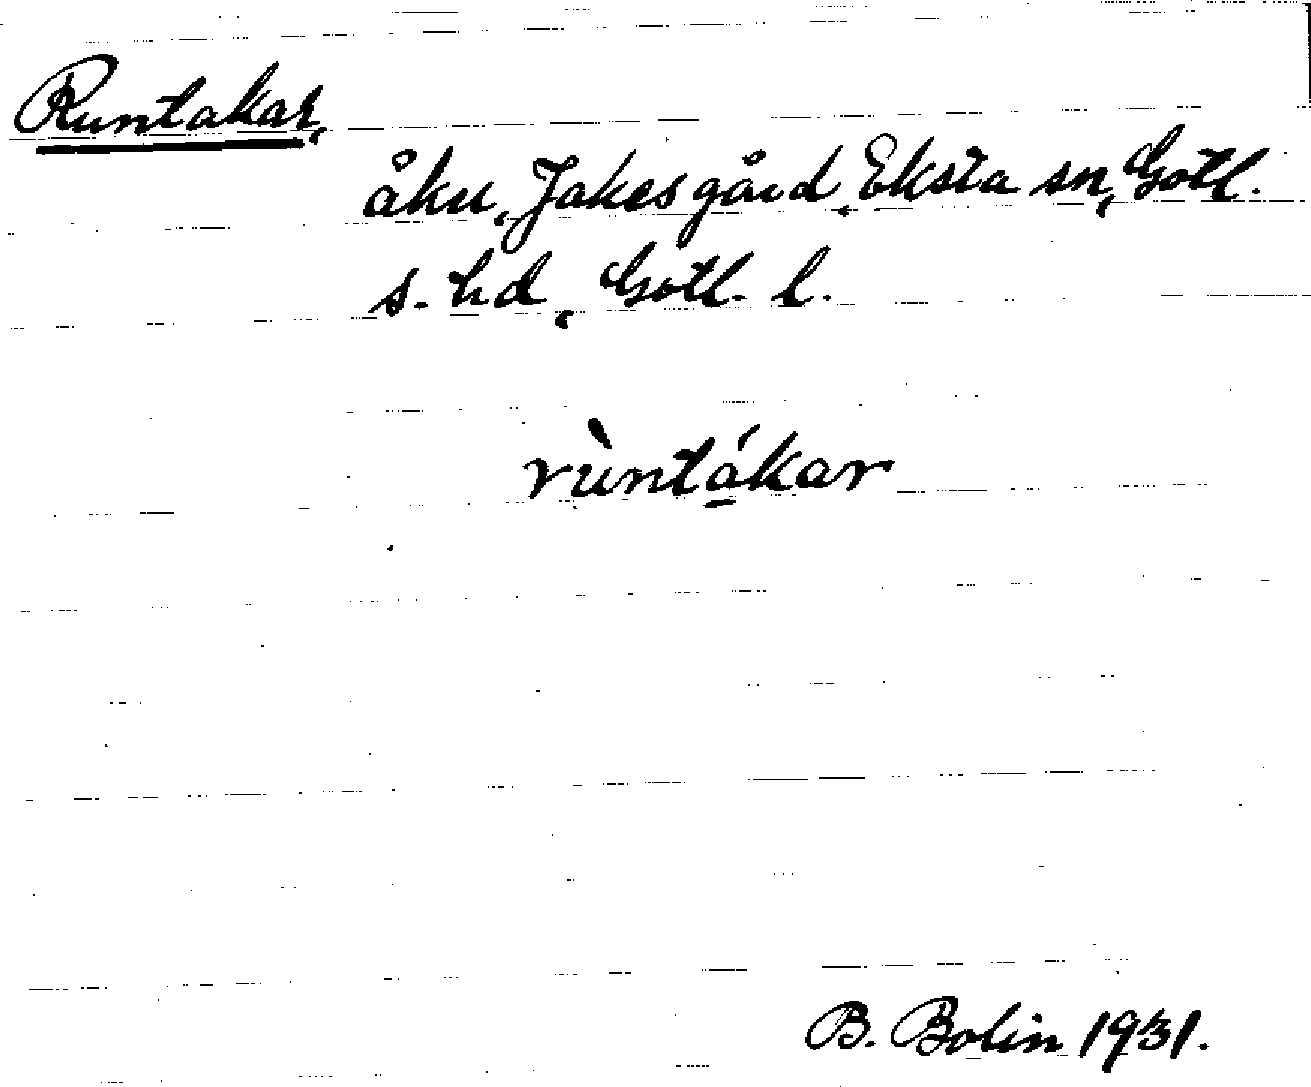 Runtakar,
åku, Jakesgård, Eksta sn, Gotl.
s. hd, Gotl. l.
rùntá̱kar
B. Bolin 1931.